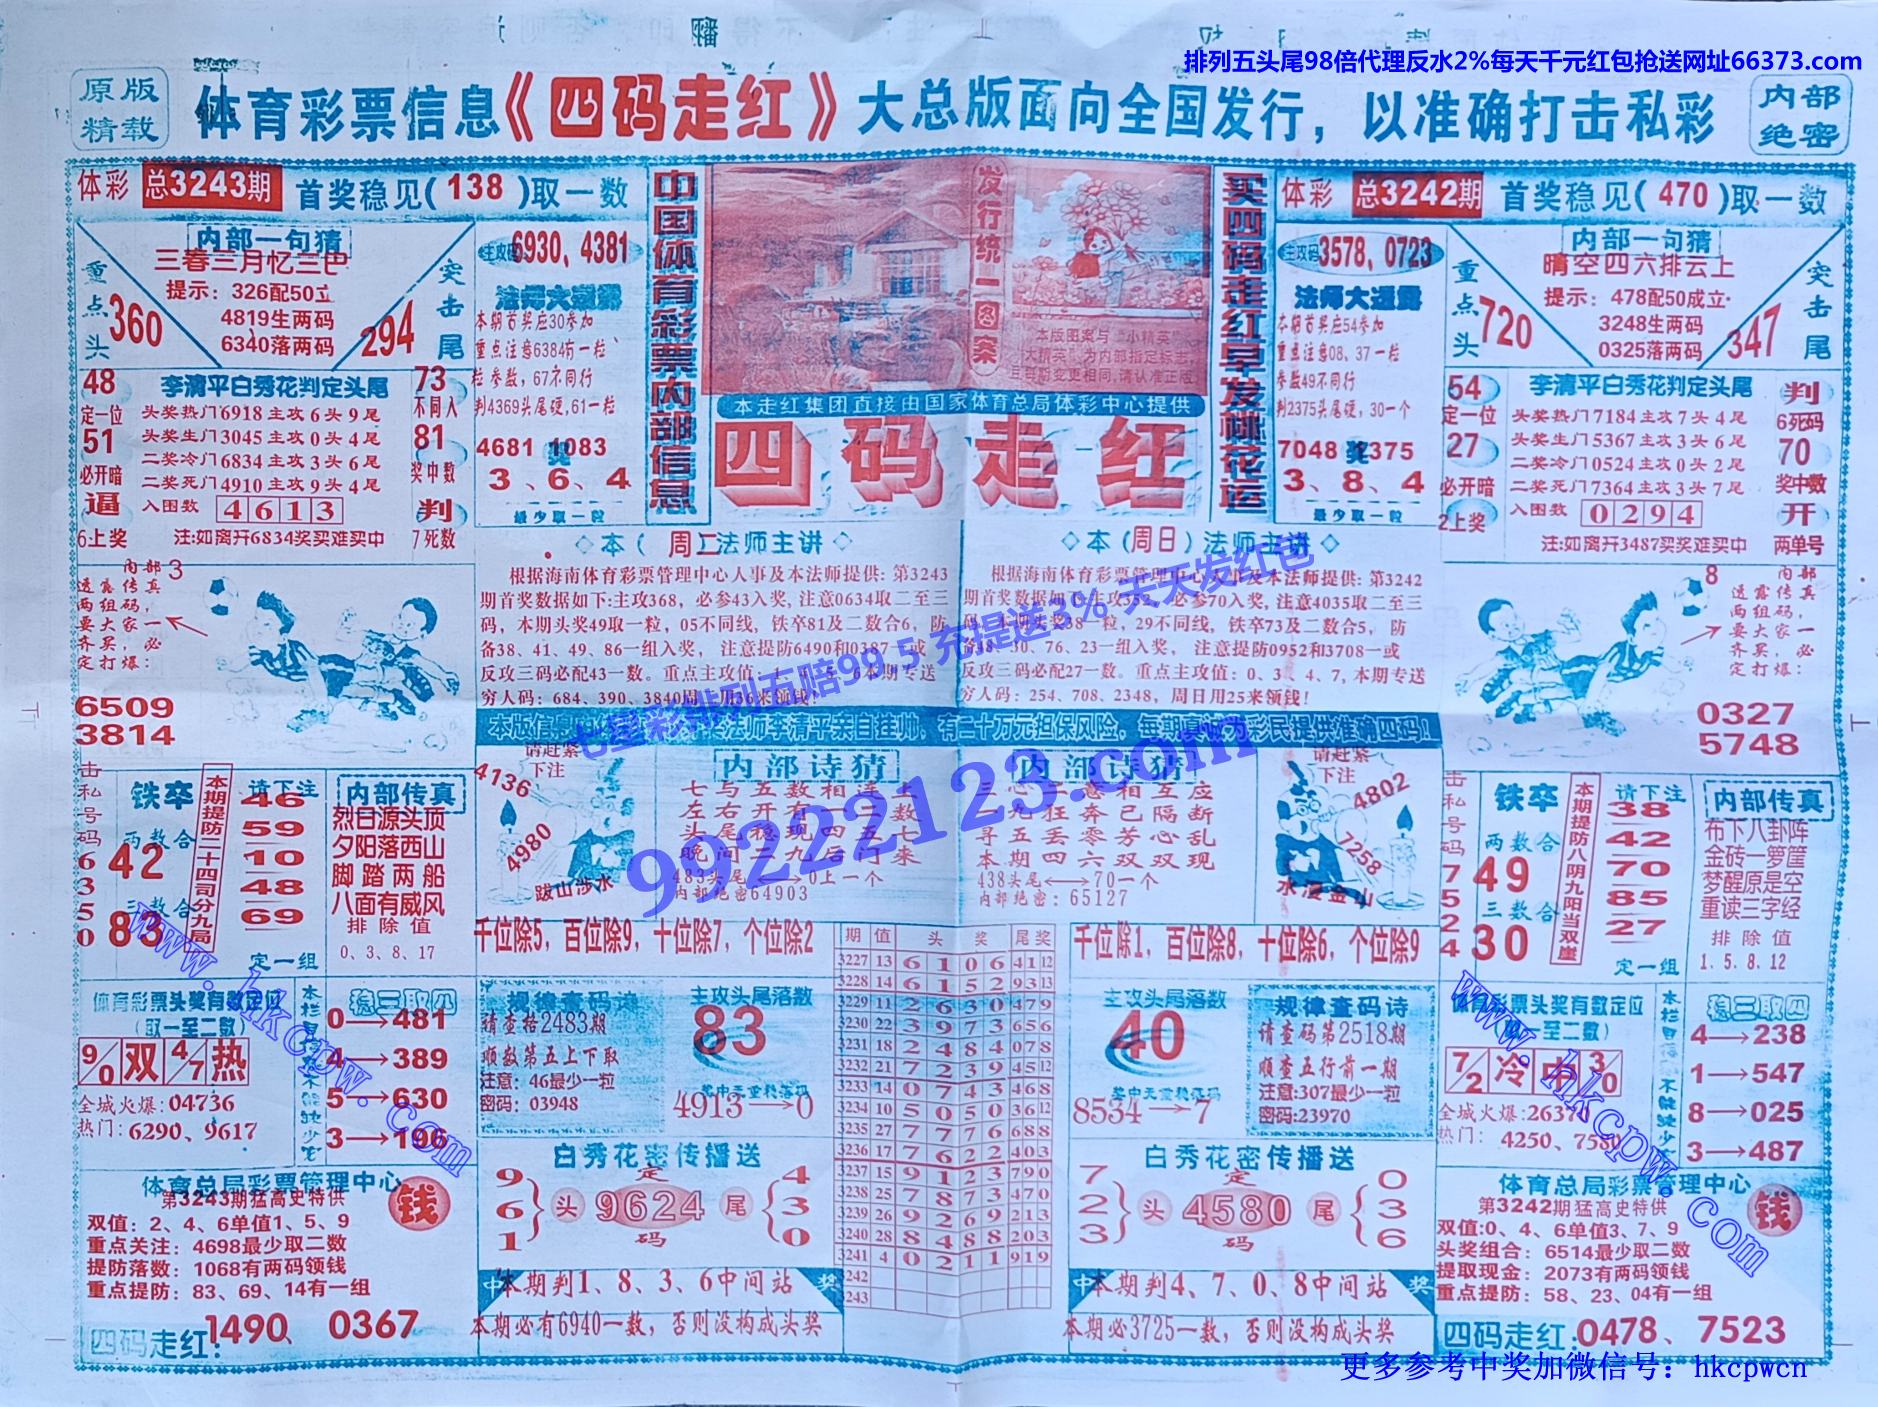 排列五头尾98倍代理反水2%每天千元红包抢送网址66373.com
原版
精载
体育彩票信息《四码走红》大总版面向全国发行，以准确打击私彩
内部
绝密
体彩 总3243期 首奖稳见(138)取一数
内部一句猜
三春三月忆三巴
提示：326配50立
4819生两码
6340落两码
重点头
360
294
突击尾
主攻码6930, 4381
法师大透露
本期首奖应30参加
重点注意6384有一粒
粒参数，67不同行
判4369头尾硬,61一粒
4681 1083
奖
3、6、4
最少取一粒
48
定一位
51
必开暗
逼
6上奖
李清平白秀花判定头尾
头奖热门6918主攻6头9尾
头奖生门3045主攻0头4尾
二奖冷门6834主攻3头6尾
二奖死门4910主攻9头4尾
入围数 4613
注:如离开6834奖买难买中
73
不同人
81
奖中数
判
7死数
中国体育彩票内部信息
发行统一图案
本版图案与“小精英”
大精英”为内部指定标志，
且每期变更相同,请认准正版
本走红集团直接由国家体育总局体彩中心提供
四码走红
买四码走红早发桃花运
体彩 总3242期 首奖稳见(470)取一数
主攻码3578, 0723
法师大透露
本期首奖应54参加
重点注意08、37一粒
参数49不同行
判2375头尾硬，30一个
7048 2375
奖
3、8、4
最少取一粒
内部一句猜
晴空四六排云上
提示：478配50成立
3248生两码
0325落两码
重点头
720
347
突击尾
54
定一位
27
必开暗
2上奖
李清平白秀花判定头尾
头奖热门7184主攻7头4尾
头奖生门5367主攻3头6尾
二奖冷门0524主攻0头2尾
二奖死门7364主攻3头7尾
入围数 0294
注:如离开3487买奖难买中
判
6死码
70
奖中数
开
两单号
内部
透露传真
两组码，
要大家一
齐买，必
定打爆：
3
6509
3814
◇本（周二）法师主讲◇
根据海南体育彩票管理中心人事及本法师提供: 第3243
期首奖数据如下:主攻368，必参43入奖, 注意0634取二至三
码，本期头奖49取一粒，05不同线，铁卒81及二数合6，防
备38、41、49、86一组入奖， 注意提防6490和0387一或
反攻三码必配43一数。重点主攻值：
本期专送
穷人码：684、390、3840周二用36来领钱！
◇本（周日）法师主讲◇
根据海南体育彩票管理中心人事及本法师提供: 第3242
期首奖数据如下:主攻352，必参70入奖, 注意4035取二至三
码，本期头奖38一粒，29不同线，铁卒73及二数合5， 防
备18、30、76、23一组入奖， 注意提防0952和3708一或
反攻三码必配27一数。重点主攻值：0、3、4、7, 本期专送
穷人码：254、708、2348，周日用25来领钱！
七星彩排列五赔99.5 充提送3% 天天发红包
99222123.com
8
内部
透露传真
两组码，
要大家一
齐买，必
定打爆：
0327
5748
法师李清平亲自挂帅，有二十万元担保风险。每期真诚为彩民提供准确四码！
击私号码6350
铁卒
两数合
42
三数合
83
本期提防二十四司分九局
请下注
46
59
10
48
69
定一组
内部传真
烈日源头顶
夕阳落西山
脚踏两船
八面有威风
排除值
0、3、8、17
4136
请赶紧
下注
4980
跋山涉水
内部诗猜
七与五数相连上
左右开有一二数
头尾稳现四五七
晚间二九后门来
483头尾⟷0上一个
内部绝密64903
内部诗猜
三心二意相互应
九狂奔已隔断
寻五丢零芳心乱
本期四六双双现
438头尾⟷70一个
内部绝密：65127
请赶紧
下注
4802
7258
水漫金山
击私号码7524
铁卒
两数合
49
三数合
30
本期提防八阴九阳当双崖
请下注
38
42
70
85
27
定一组
内部传真
布下八卦阵
金砖一箩筐
梦醒原是空
重读三字经
排除值
1、5、8、12
千位除5，百位除9，十位除7，个位除2
千位除1，百位除8，十位除6，个位除9
期 值 头 奖 尾奖
3227 13 6 1 0 6 41 12
3228 14 6 1 5 2 93 13
3229 11 2 6 3 0 479
3230 22 3 9 7 3 656
3231 18 2 4 8 4 078
3232 21 7 2 3 9 45 12
3233 14 0 7 4 3 468
3234 10 5 0 5 0 36 12
3235 27 7 7 7 6 688
3236 17 7 6 2 2 403
3237 15 9 1 2 3 790
3238 25 7 8 7 3 470
3239 26 9 2 6 9 213
3240 28 8 4 8 8 203
3241 4 0 2 1 1 919
3242
3243
体育彩票头奖有数定位
(取一至二数)
9/0 双 4/7 热
全城火爆:04736
热门：6290、9617
稳三取四
0→481
4→389
5→630
3→196
规律查码诗
请查格2483期
顺数第五上下取
注意：46最少一粒
密码：03948
主攻头尾落数
83
奖中天重稳落码
4913→0
主攻头尾落数
40
奖中天重稳落码
8534→7
规律查码诗
请查码第2518期
顺查五行前一期
注意:307最少一粒
密码:23970
体育彩票头奖有数定位
7/2 冷 3/0
全城火爆:2637
热门：4250、7580
稳三取四
4→238
1→547
8→025
3→487
体育总局彩票管理中心
第3243期猛高史特供
钱
双值：2、4、6单值1、5、9
重点关注：4698最少取二数
提防落数：1068有两码领钱
重点提防：83、69、14有一组
四码走红：1490、0367
白秀花密传播送
9
6
1
头
定
9624
码
尾
4
3
0
中
本期判1、8、3、6中间站
奖
本期必有6940一数，否则没构成头奖
白秀花密传播送
7
2
3
头
定
4580
码
尾
0
3
6
中
本期判4、7、0、8中间站
奖
本期必3725一数，否则没构成头奖
体育总局彩票管理中心
第3242期猛高史特供
钱
双值:0、4、6单值3、7、9
头奖组合：6514最少取二数
提取现金：2073有两码领钱
重点提防：58、23、04有一组
四码走红:0478、7523
www.hkcpw.com
www.hkcpw.com
更多参考中奖加微信号：hkcpwcn